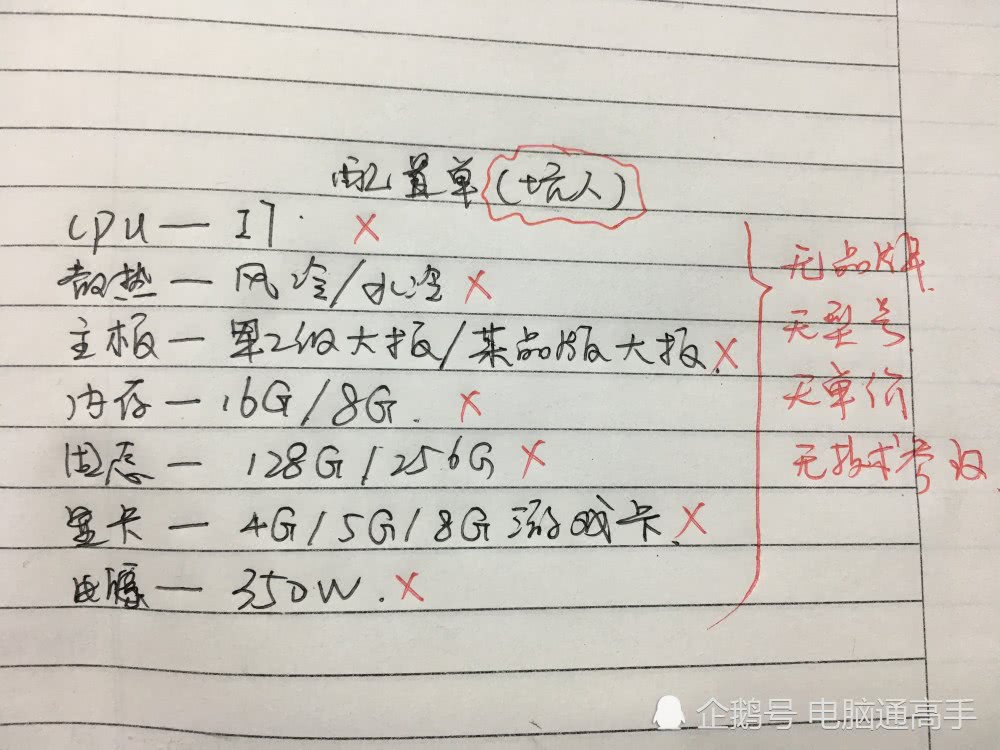 配置单(坑人)
CPU — I7. X
散热 — 风冷/水冷 X
主板 — 军工级大板/某品牌大板. X
内存 — 16G/8G. X
固态 — 128G/256G X
显卡 — 4G/5G/8G 游戏卡. X
电源 — 350W. X
无品牌
无型号
无单价
无技术参数
企鹅号 电脑通高手